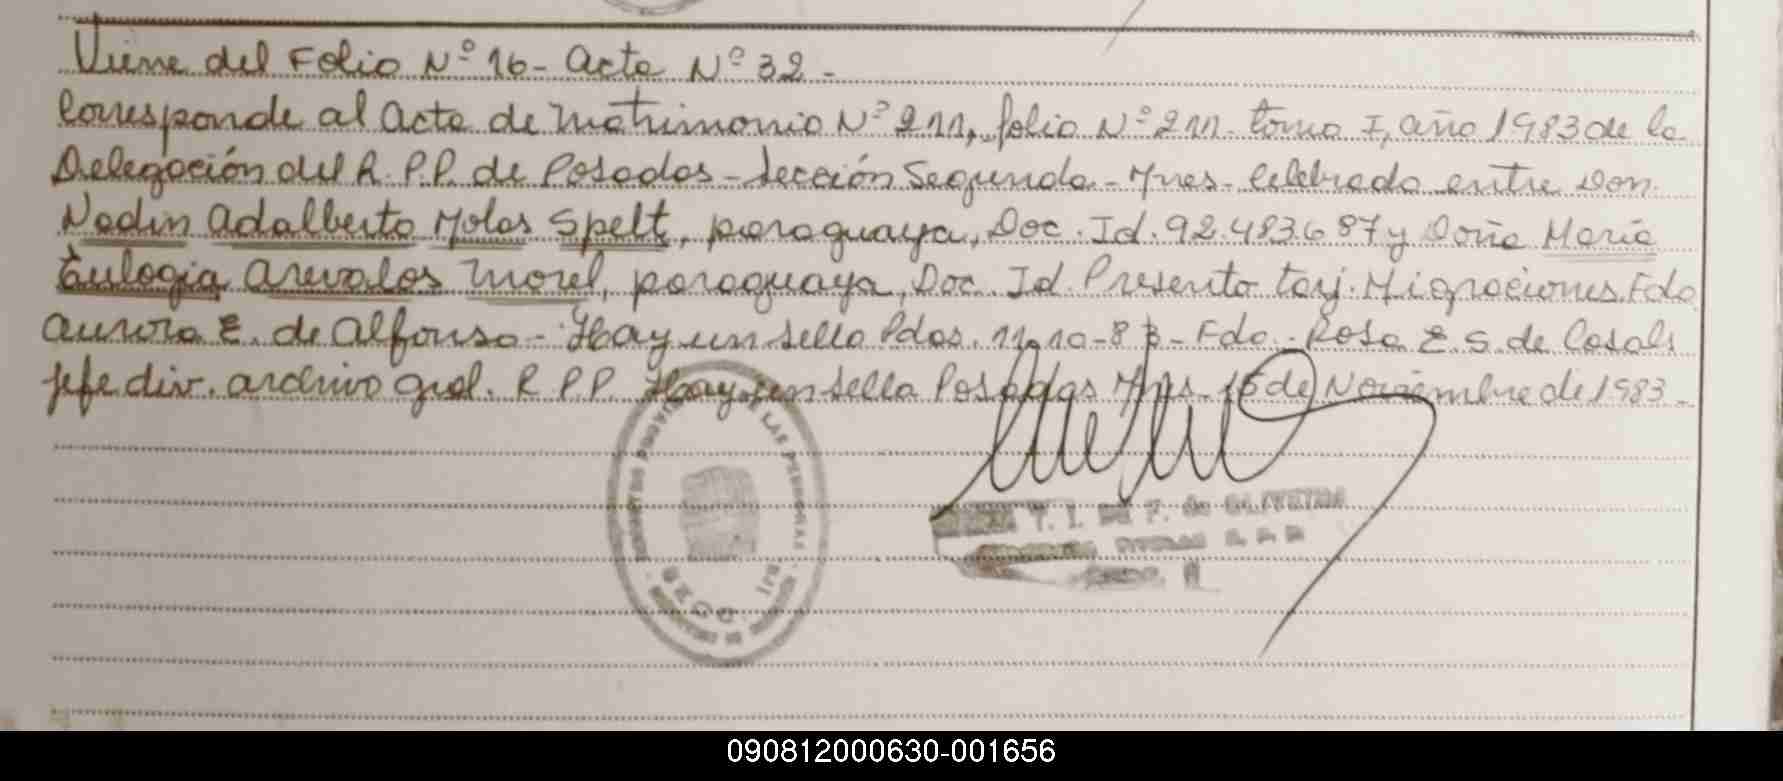 Viene del Folio Nº 16 - Acta Nº 32 -
Corresponde al Acta de Matrimonio Nº 211, folio Nº 211 - tomo I, año 1983 de la
Delegación del R. P. P. de Posadas - Sección Segunda - Mnes - Celebrado entre Don
Nadin Adalberto Molas Spelt, paraguaya, Doc. Id. 92.483.687 y Doña Maria
Eulogia Arevalos Morel, paraguaya, Doc. Id. Presento tarj. Migraciones. Fdo
Aurora E. de Alfonso - Hay un sello Pdas. 11-10-83 - Fdo - Rosa E. S. de Casals
Jefe div. archivo gral. R P.P. Hay un sello Posadas Mnes. 15 de Noviembre de 1983 -
DE LAS PERSONAS
T. I. DE F. de OLIVEIRA
090812000630-001656